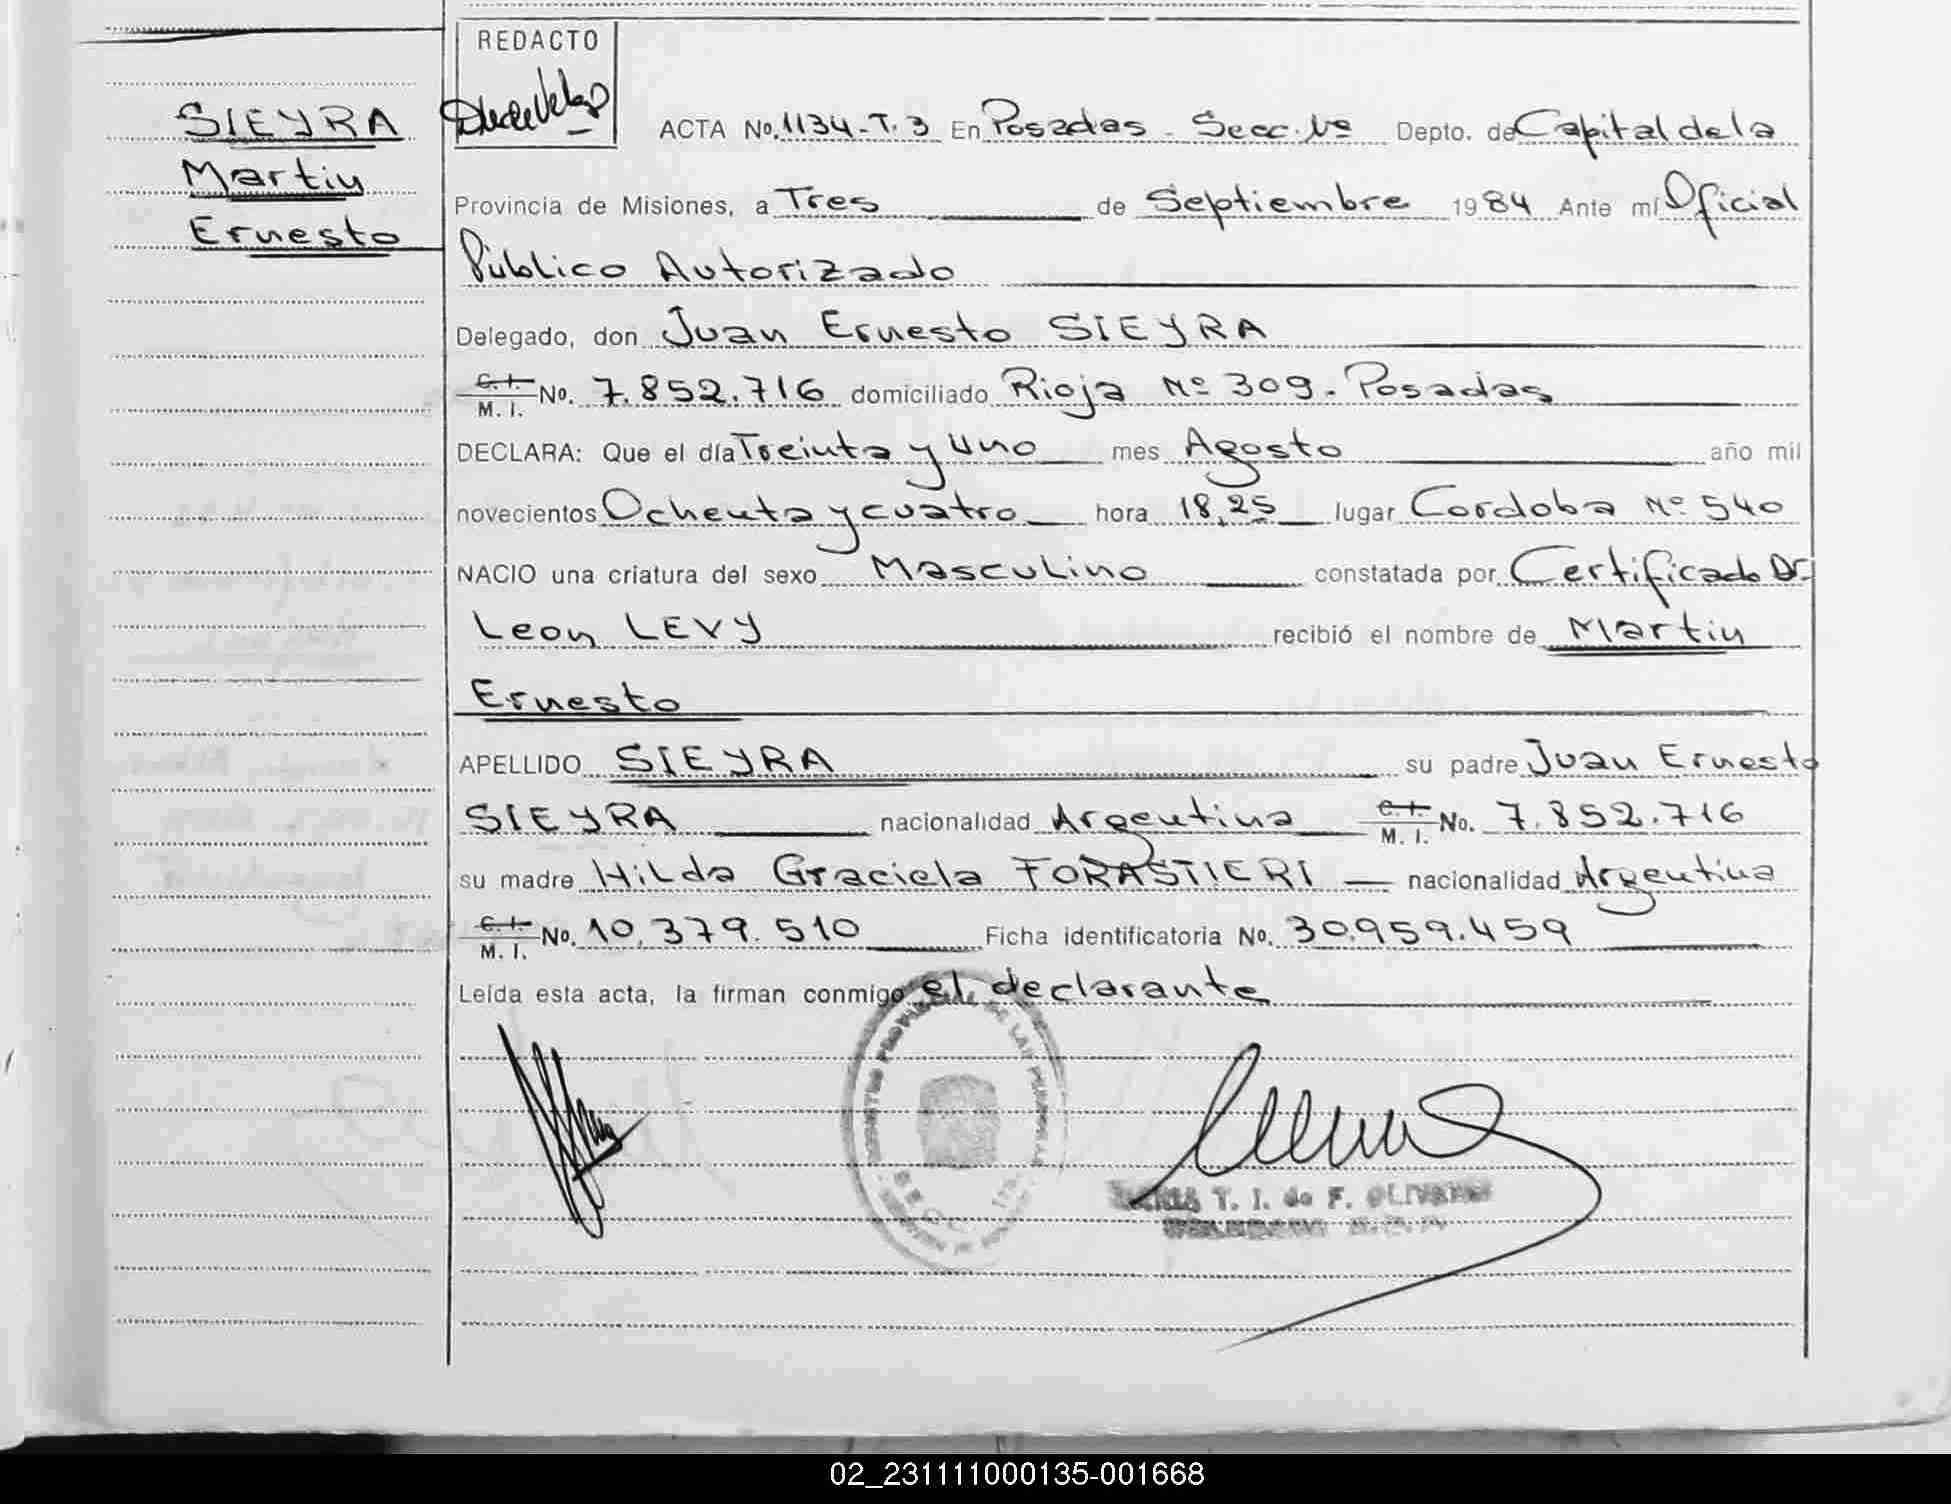 REDACTO
SIEYRA
Martin
Ernesto
ACTA No. 1134-T.3 En Posadas - Secc. 1ra Depto. de Capital de la
Provincia de Misiones, a Tres de Septiembre 1984 Ante mí Oficial
Público Autorizado
Delegado, don Juan Ernesto SIEYRA
C. I. M. I. No. 7.852.716 domiciliado Rioja Nº 309. Posadas
DECLARA: Que el día Treinta y Uno mes Agosto año mil
novecientos Ochenta y cuatro hora 18,25 lugar Cordoba Nº 540
NACIO una criatura del sexo Masculino constatada por Certificado Dr.
Leon LEVY recibió el nombre de Martin
Ernesto
APELLIDO SIEYRA su padre Juan Ernesto
SIEYRA nacionalidad Argentina C. I. M. I. No. 7.852.716
su madre Hilda Graciela FORASTIERI nacionalidad Argentina
C. I. M. I. No. 10.379.510 Ficha identificatoria No. 30.959.459
Leída esta acta, la firman conmigo el declarante
T. I. de F. OLIVEIRA
02_231111000135-001668